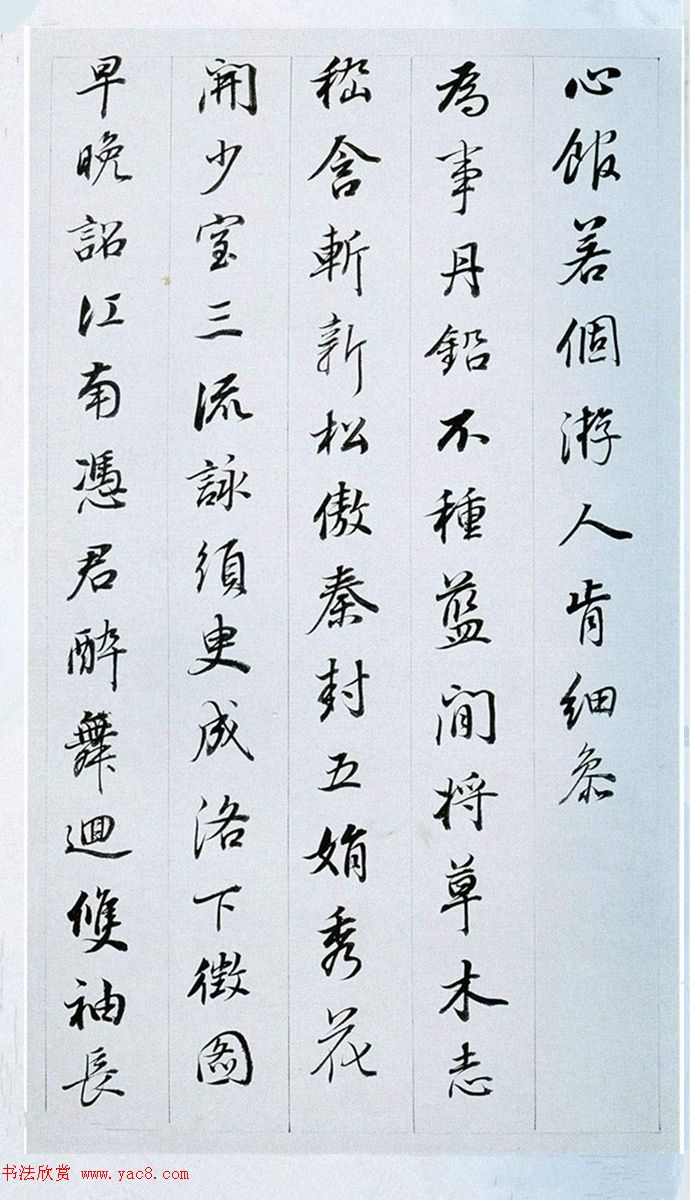 心飯若個游人肯細叅
為事丹鉛不種藍間將草木志
嵇含斬新松傲秦封五娟秀花
開少室三流詠須臾成洛下徵圖
早晚詔江南憑君醉舞迴雙袖長
书法欣赏 www.yac8.com